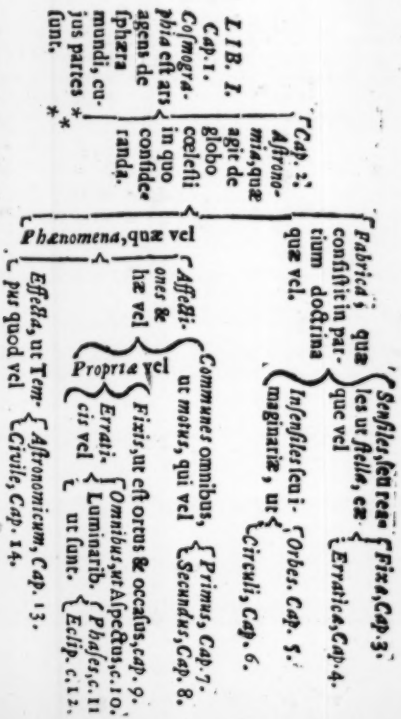 LIB. I.
Cap. 1.
Coſmogra-
phia eſt ars
agens de
ſphæra
mundi, cu-
jus partes *
ſunt. * *
Cap. 2,
Aſtrono-
mia, quæ
agit de
globo
cœleſti
in quo
conſide-
randa.
Fabrica; quæ
conſiſtit in par-
tium doctrina
quæ vel.
Senſiles, ſeu rea-
les ut ſtellæ, eæ-
que vel
Fixæ, Cap. 3.
Erraticæ, Cap. 4.
Inſenſiles ſeu i-
maginariæ, ut
Orbes. Cap. 5.
Circuli, Cap. 6.
Phænomena, quæ vel
Affecti-
ones &
hæ vel
Communes omnibus,
ut motus, qui vel
Primus, Cap. 7.
Secundus, Cap. 8.
Propriæ vel
Fixis, ut eſt ortus & occaſus, cap. 9.
Errati-
cis vel
Omnibus, ut Aſpectus, c. 10.
Luminarib.
ut ſunt.
Phaſes, c. 11
Eclip. c. 12.
Effecta, ut Tem-
pus quod vel
Aſtronomicum, Cap. 13.
Civile, Cap. 14.